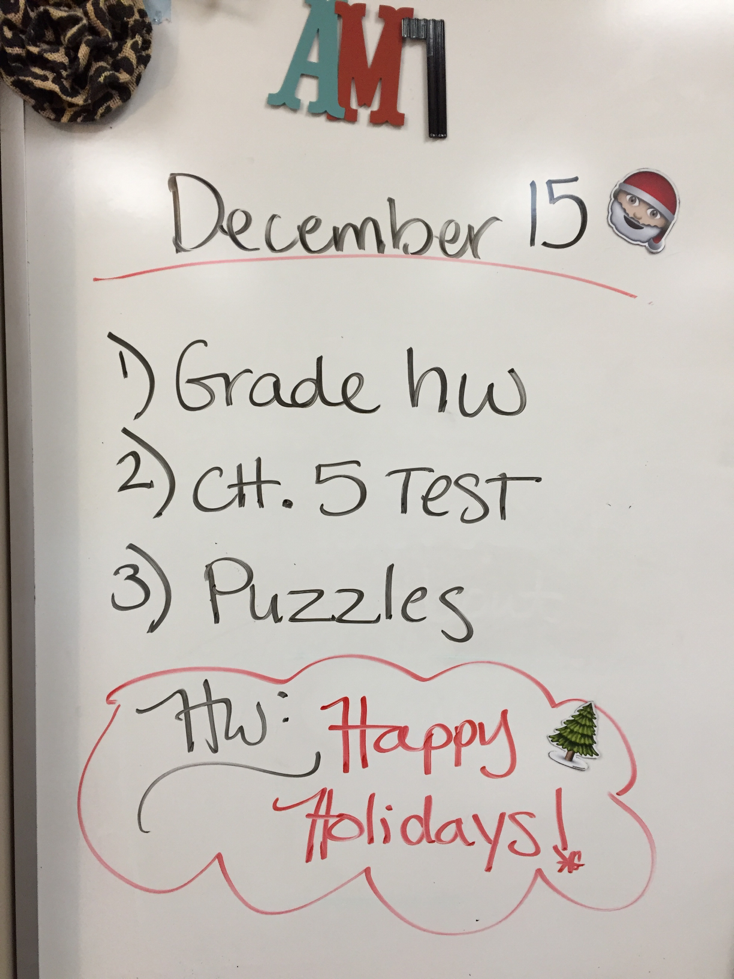 AM7
December 15
1) Grade hw
2) CH. 5 Test
3) Puzzles
HW: Happy
Holidays!